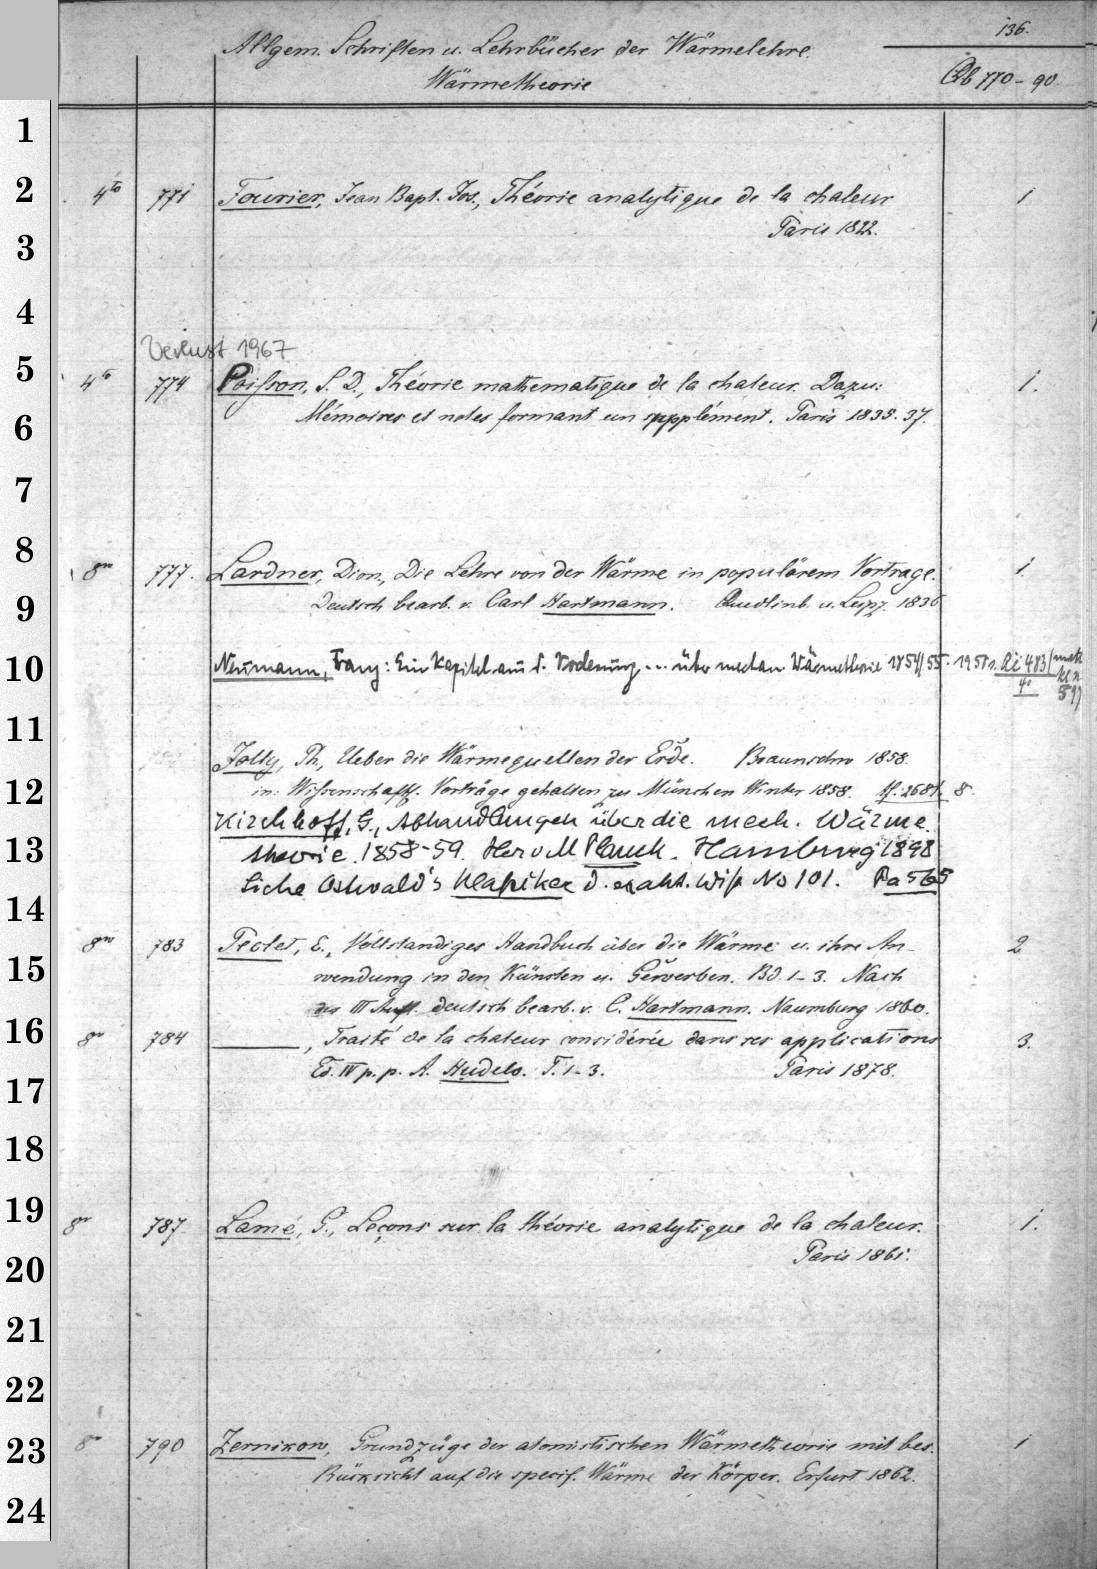 136.
Allgem. Schriften u. Lehrbücher der Wärmelehre.
Wärmetheorie
Qb 770-90
1
2
3
4
5
6
7
8
9
10
11
12
13
14
15
16
17
18
19
20
21
22
23
24
4to 771 Fourier, Jean Bapt. Jos., Théorie analytique de la chaleur 1
Paris 1822.
Verlust 1967
4to 774 Poisson, S. D., Théorie mathematique de la chaleur. Dazu: 1.
Mémoires et notes formant un supplément. Paris 1835. 37.
8vo 777. Lardner, Dion., Die Lehre von der Wärme in populärem Vortrage. 1.
Deutsch bearb. v. Carl Hartmann. Quedlinb. u. Leipz. 1836
Neumann, Franz: Ein Kapitel aus d. Vorlesung ... über mechan Wärmetheorie 1854/55. 1950. Ai 483 (math
4° Kl n
59)
Jolly, Ph., Ueber die Wärmequellen der Erde. Braunschw 1858.
in: Wissenschaftl. Vorträge gehalten zu München Winter 1858. 2681. 8.
Kirchhoff, G., Abhandlungen über die mech. Wärme
theorie. 1858-59. Her v M Planck. Hamburg 1898
Siehe Ostwald's Klassiker d. exakt. Wiss No 101. Pa 565
8vo 783 Peclet, E., Vollständiges Handbuch über die Wärme u. ihre An- 2
wendung in den Künsten u. Gewerben. Bd. 1-3. Nach
der III Aufl. deutsch bearb. v. C. Hartmann. Naumburg 1860.
8vo 784 ———, Traité de la chaleur considérée dans ses applications 3.
Ed. IV p. p. A. Hudelo. T. 1-3. Paris 1878.
8vo 787 Lamé, G., Leçons sur la théorie analytique de la chaleur. 1.
Paris 1861.
8vo 790 Zernikow, Grundzüge der atomistischen Wärmetheorie mit bes. 1
Rücksicht auf die specif. Wärme der Körper. Erfurt 1862.